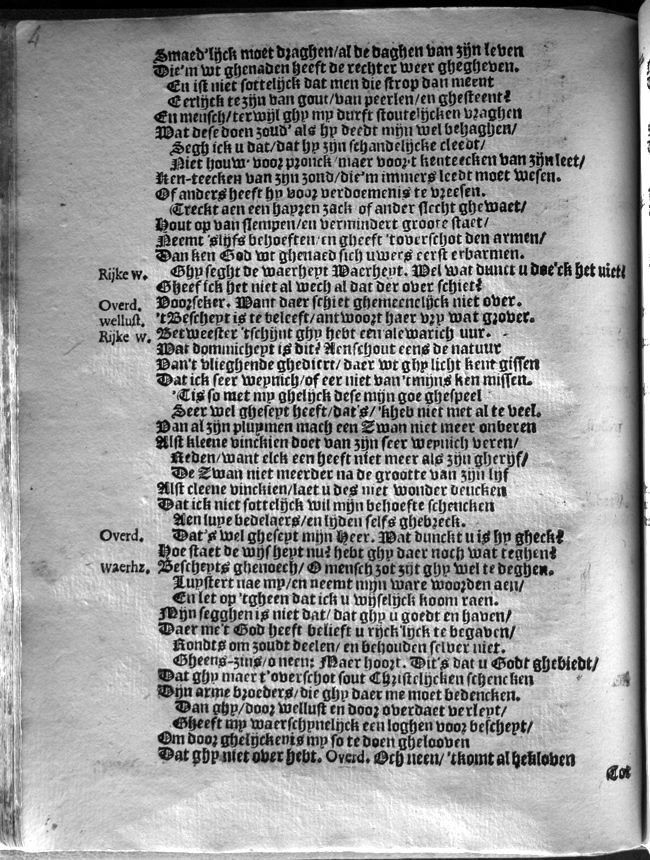 4
Smaed'lijck moet draghen/al de daghen van zijn leven
Die'm wt ghenaden heeft de rechter weer ghegheven.
En ist niet sottelijck dat men die strop dan meent
Eerlijck te zijn van gout/van peerlen/en ghesteent?
En mensch/terwijl ghy my durft stoutelijcken vraghen
Wat dese doen zoud' als hy deedt mijn wel behaghen/
Segh ick u dat/dat hy zijn schandelijcke cleedt/
Niet houw' voor pronck/maer voor't kenteecken van zijn leet/
Ken-teecken van zijn zond/die'm immers leedt moet wesen.
Of anders heeft hy voor verdoemenis te vreesen.
Treckt aen een hayren zack of ander slecht ghewaet/
Hout op van slempen/en vermindert groote staet/
Neemt 'slijfs behoeften/en gheeft 'toverschot den armen/
Dan ken God wt ghenaed sich uwers eerst erbarmen.
Rijke w. Ghy seght de waerheyt Waerheyt. Wel wat dunct u doe'ck het niet?
Gheef ick het niet al wech al dat der over schiet?
Overd. Voorseker. Want daer schiet ghemeenelijck niet over.
wellust. 't Bescheyt is te beleeft/antwoort haer vry wat grover.
Rijke w. Betweester 'tschijnt ghy hebt een alewarich uur.
Wat dominicheyt is dit? Aenschout eens de natuur
Van't vlieghende ghediert/ daer wt ghy licht kent gissen
Dat ick seer weynich/of eer niet van 'tmijns ken missen.
'Tis so met my ghelijck dese mijn goe ghespeel
Seer wel gheseyt heeft/dat's/'kheb niet met al te veel.
Van al zijn pluymen mach een Zwan niet meer onberen
Alst kleene vinckien doet van zijn seer weynich veren/
Reden/want elck een heeft niet meer als zijn gherijf/
De Zwan niet meerder na de grootte van zijn lijf
Alst cleene vinckien/laet u des niet wonder deucken
Dat ick niet sottelijck wil mijn behoefte schencken
Aen luye bedelaers/en lijden selfs ghebreck.
Overd. Dat's wel gheseyt mijn Heer. Wat dunckt u is hy gheck?
Hoe staet de wijsheyt nu? hebt ghy daer noch wat teghen?
Waerhz. Bescheyts ghenoech/O mensch zot zijt ghy wel te deghen.
Luystert nae my/en neemt mijn ware woorden aen/
En let op 'tgheen dat ick u wijselijck koom raen.
Mijn segghen is niet dat/dat ghy u goedt en haven/
Daer me't God heeft belieft u rijck'lijck te begaven/
Rondts om zoudt deelen/en behouden selver niet.
Gheens-zins/o neen: Maer hoort. Dit's dat u Godt ghebiedt/
Dat ghy maer t'overschot sout Christelijcken schencken
Dijn arme broeders/die ghy daer me moet bedencken.
Dan ghy/door wellust en door overdaet verleyt/
Gheeft my waerschynelijck een loghen voor bescheyt/
Om door ghelijckenis my so te doen ghelooven
Dat ghy niet over hebt. Overd. Och neen/'tkomt al bekloven
Tot